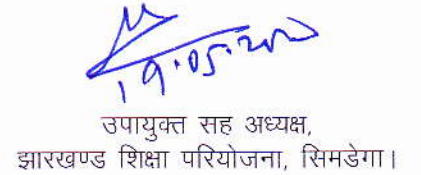 19.05.20
उपायुक्त सह अध्यक्ष,
झारखण्ड शिक्षा परियोजना, सिमडेगा।